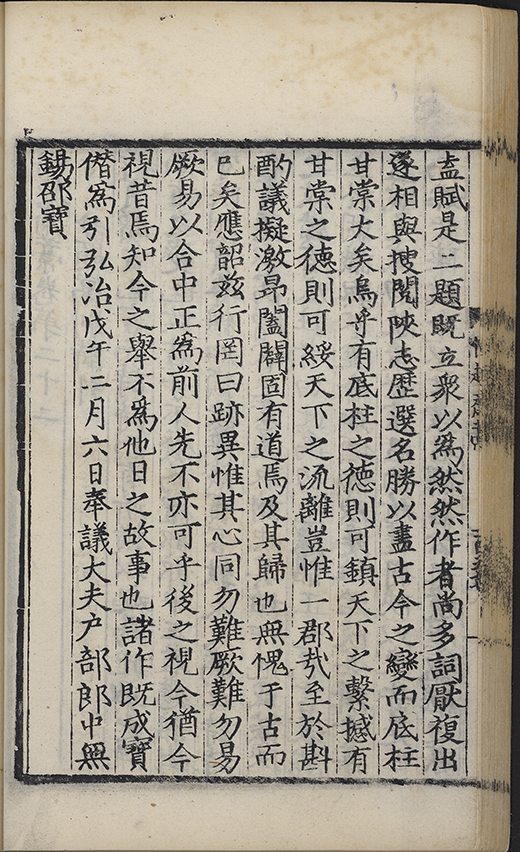 盍賦是二題既立衆以爲然然作者尚多詞厭複出
遂相與搜閱陜志歷選名勝以盡古今之變而底柱
甘棠大矣烏乎有底柱之德則可鎮天下之繫撼有
甘棠之德則可綏天下之流離豈惟一郡哉至於斟
酌議擬激昻闔闢固有道焉及其歸也無愧于古而
已矣應韶兹行罔曰跡異惟其心同勿難厥難勿易
厥易以合中正爲前人先不亦可乎後之視今猶今
視昔焉知今之舉不爲他日之故事也諸作既成寶
僣爲引弘治戊午二月六日奉議大夫户部郎中無
錫邵寶